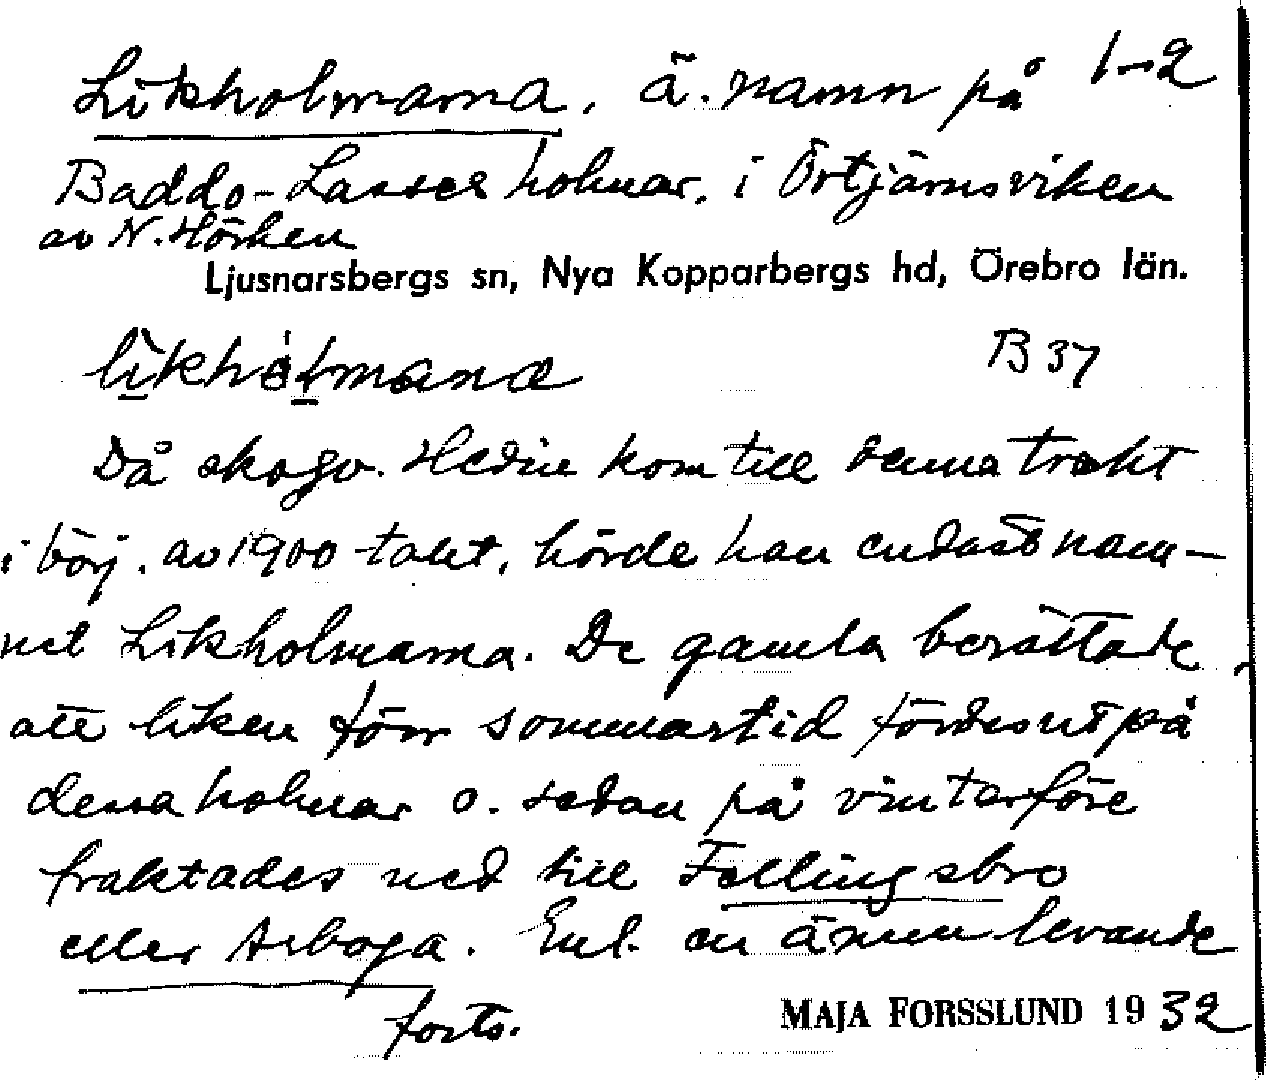 Likholmarna, ä. namn på 1-2
Baddo-Lasses holmar, i Örtjärnsviken
av N. Hörken
Ljusnarsbergs sn, Nya Kopparbergs hd, Örebro län.
B 37
Då skogv. Hedin kom till denna trakt
i börj. av 1900-talet, hörde han endast nam-
net Likholmarna. De gamla berättade,
att liken förr sommartid fördes ut på
dessa holmar o. sedan på vinterföre
fraktades ned till Fellingsbro
eller Arboga. Enl. en ännu levande
forts.
MAJA FORSSLUND 1932